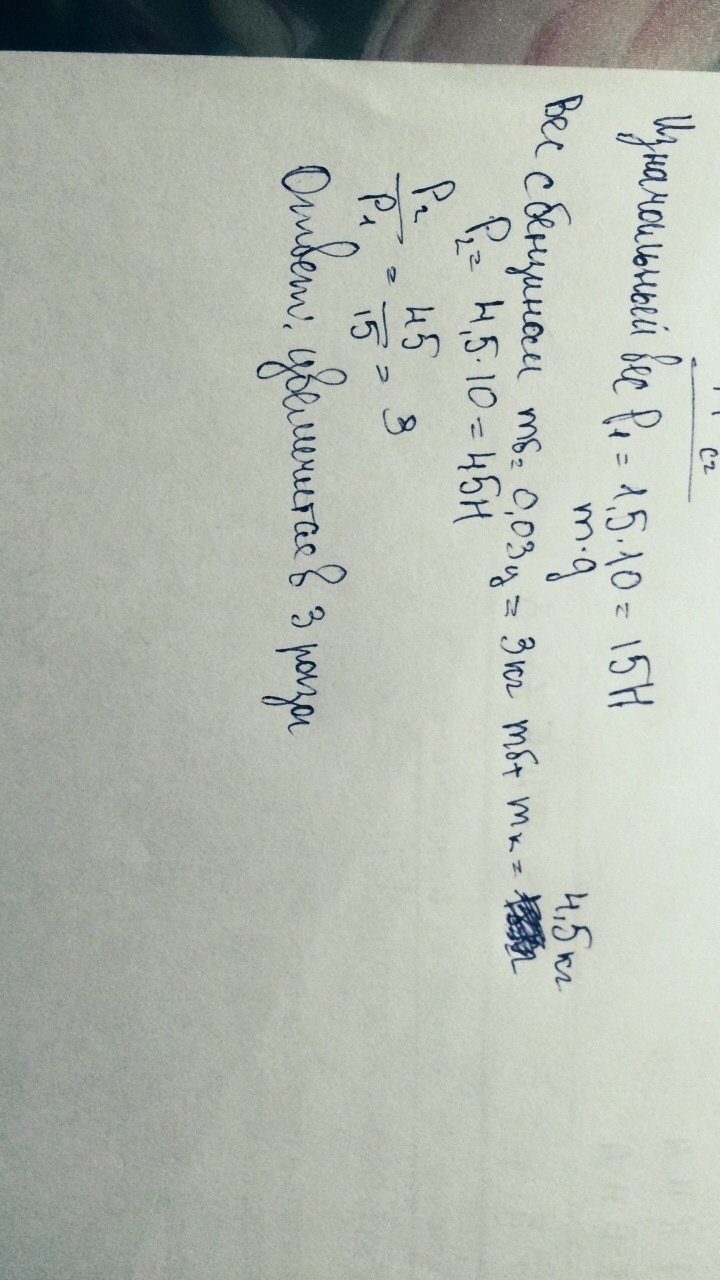 с²
Изначальный вес P₁ = 1,5·10 = 15Н
m·g
4,5 кг
Вес с бензином mб = 0,03ц = 3кг mб + mк =
P₂ = 4,5·10 = 45Н
P₂/P₁ = 45/15 = 3
Ответ: увеличится в 3 раза